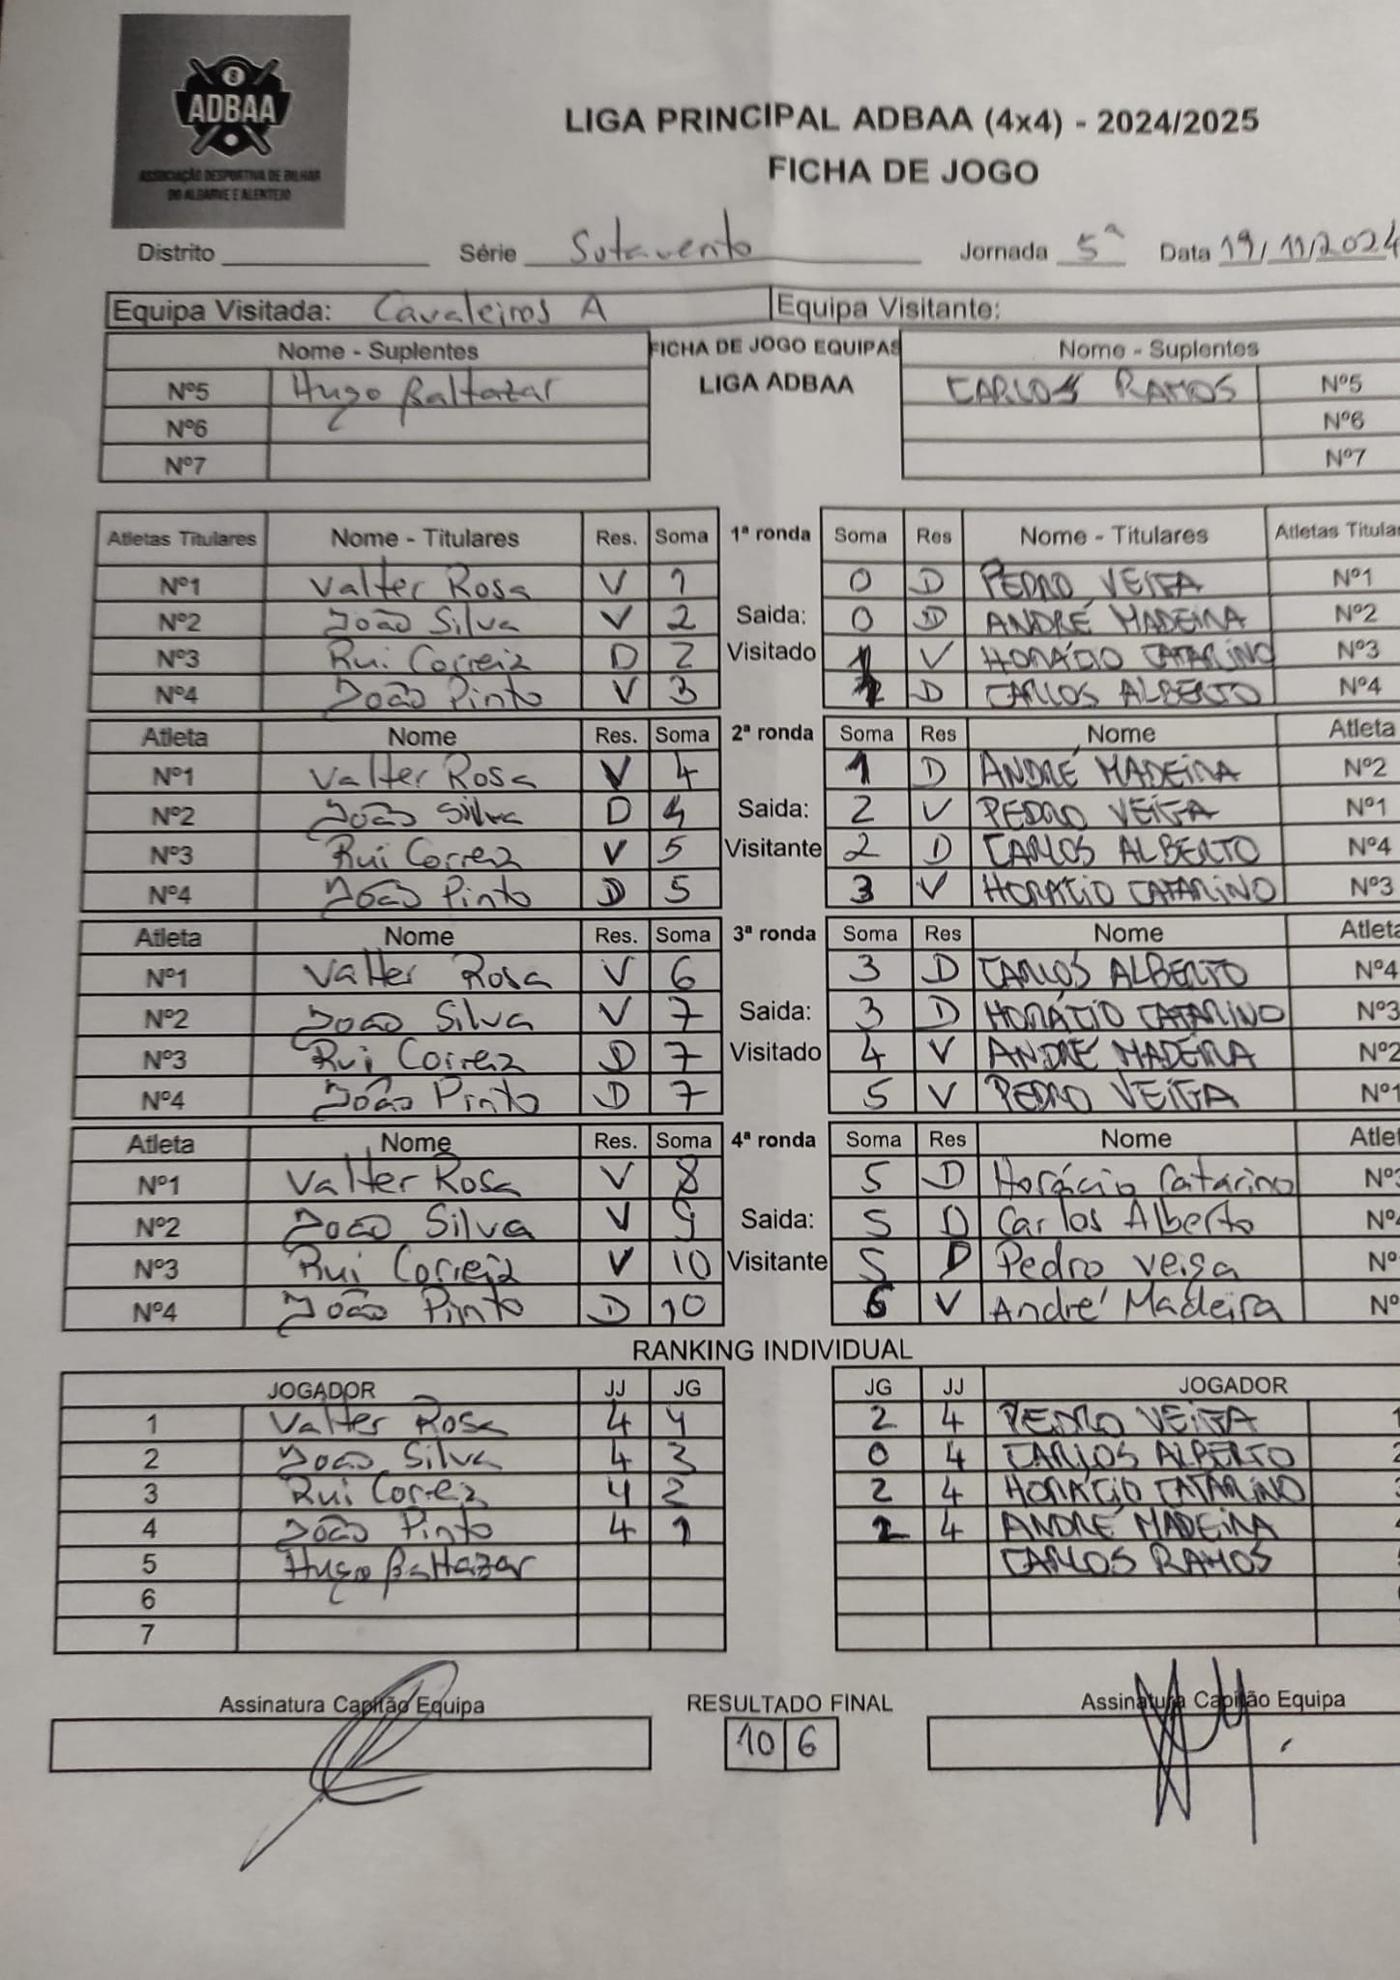 8
ADBAA
ASSOCIAÇÃO DESPORTIVA DE BILHAR
DO ALGARVE E ALENTEJO
LIGA PRINCIPAL ADBAA (4x4) - 2024/2025
FICHA DE JOGO
Distrito Série Sotavento Jornada 5ª Data 19/11/2024
Equipa Visitada: Cavaleiros A Equipa Visitante:
Nome - Suplentes FICHA DE JOGO EQUIPAS Nome - Suplentes
Nº5 Hugo Baltazar LIGA ADBAA CARLOS RAMOS Nº5
Nº6 Nº6
Nº7 Nº7
Atletas Titulares Nome - Titulares Res. Soma 1ª ronda Soma Res Nome - Titulares Atletas Titular
Nº1 Valter Rosa V 1 0 D PEDRO VEIGA Nº1
Nº2 João Silva V 2 Saida: 0 D ANDRÉ MADEIRA Nº2
Nº3 Rui Correia D 2 Visitado 1 V HORÁCIO CATARINO Nº3
Nº4 João Pinto V 3 1 D CARLOS ALBERTO Nº4
Atleta Nome Res. Soma 2ª ronda Soma Res Nome Atleta
Nº1 Valter Rosa V 4 1 D ANDRÉ MADEIRA Nº2
Nº2 João Silva D 4 Saida: 2 V PEDRO VEIGA Nº1
Nº3 Rui Correia V 5 Visitante 2 D CARLOS ALBERTO Nº4
Nº4 João Pinto D 5 3 V HORÁCIO CATARINO Nº3
Atleta Nome Res. Soma 3ª ronda Soma Res Nome Atleta
Nº1 Valter Rosa V 6 3 D CARLOS ALBERTO Nº4
Nº2 João Silva V 7 Saida: 3 D HORÁCIO CATARINO Nº3
Nº3 Rui Correia D 7 Visitado 4 V ANDRÉ MADEIRA Nº2
Nº4 João Pinto D 7 5 V PEDRO VEIGA Nº1
Atleta Nome Res. Soma 4ª ronda Soma Res Nome Atlet
Nº1 Valter Rosa V 8 5 D Horácio Catarino Nº3
Nº2 João Silva V 9 Saida: 5 D Carlos Alberto Nº
Nº3 Rui Correia V 10 Visitante 5 D Pedro Veiga Nº
Nº4 João Pinto D 10 6 V André Madeira Nº
RANKING INDIVIDUAL
JOGADOR JJ JG JG JJ JOGADOR
1 Valter Rosa 4 4 2 4 PEDRO VEIGA 1
2 João Silva 4 3 0 4 CARLOS ALBERTO 2
3 Rui Correia 4 2 2 4 HORÁCIO CATARINO 3
4 João Pinto 4 1 2 4 ANDRÉ MADEIRA 4
5 Hugo Baltazar CARLOS RAMOS
6
7
Assinatura Capitão Equipa RESULTADO FINAL Assinatura Capitão Equipa
10 6